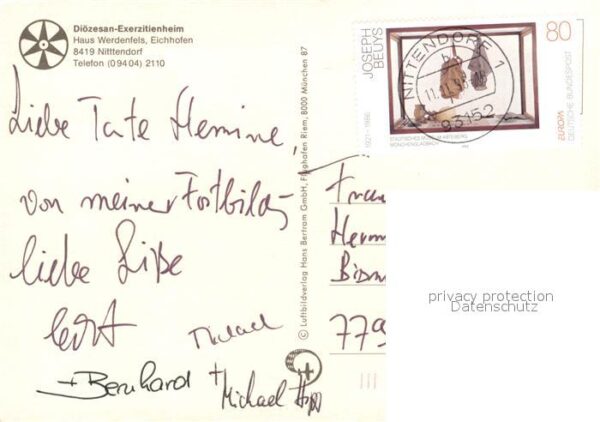 Diözesan-Exerzitienheim
Haus Werdenfels, Eichhofen
8419 Nitttendorf
Telefon (0 94 04) 2110
Liebe Tante Hermine,
von meiner Fortbildg
liebe Grüße
Michael
+ Bernhard
+ Michael
© Luftbildverlag Hans Bertram GmbH, Flughafen Riem, 8000 München 87
JOSEPH
BEUYS
1921-1986
80
STÄDTISCHES MUSEUM ABTEIBERG
MÖNCHENGLADBACH
EUROPA
DEUTSCHE BUNDESPOST
NITTENDORF 1
93152
Frau
Herm
Bism
779
privacy protection
Datenschutz